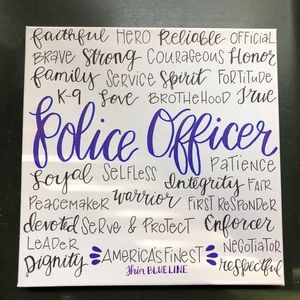 faithful HERO Reliable OFFICIAL
BRAVE Strong COURAGEOUS Honor
family SERVICE Spirit FORTITUDE
K-9 Love BROTHEHOOD True
Police Officer
Loyal SELFLESS PATIENCE
Integrity FAIR
PEACEMAKER warrior FIRST RESPONDER
devoted SERVE & PROTECT Enforcer
LEADER NEGOTIATOR
Dignity AMERICA'S FINEST respectful
Thin BLUE LINE